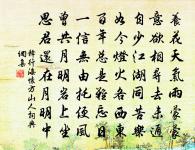 養花天氣雨濛濛
意欲相尋去未通
自少江湖同苦樂
如今燈火各西東
百
一信無由托便風
曾共月明岩上坐
思君還在月明中
釋行海懷方山人詞典
網集